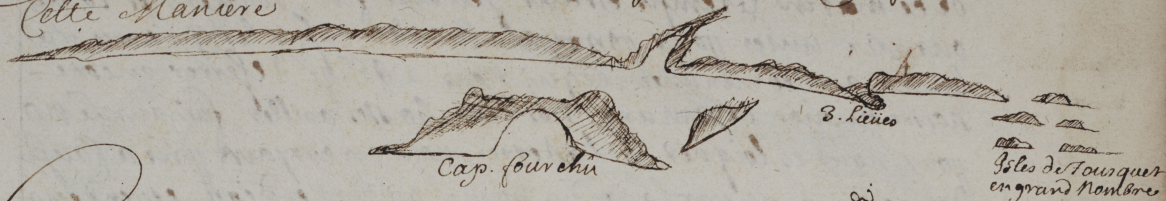 Cette Maniere
3. Lieües
Cap. fourchû
Isles de Tousquet
en grand Nombre